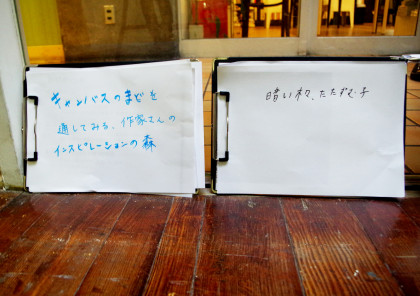 キャンバスのまどを
通してみる、作家さんの
インスピレーションの森
暗い杉、たたずむ子